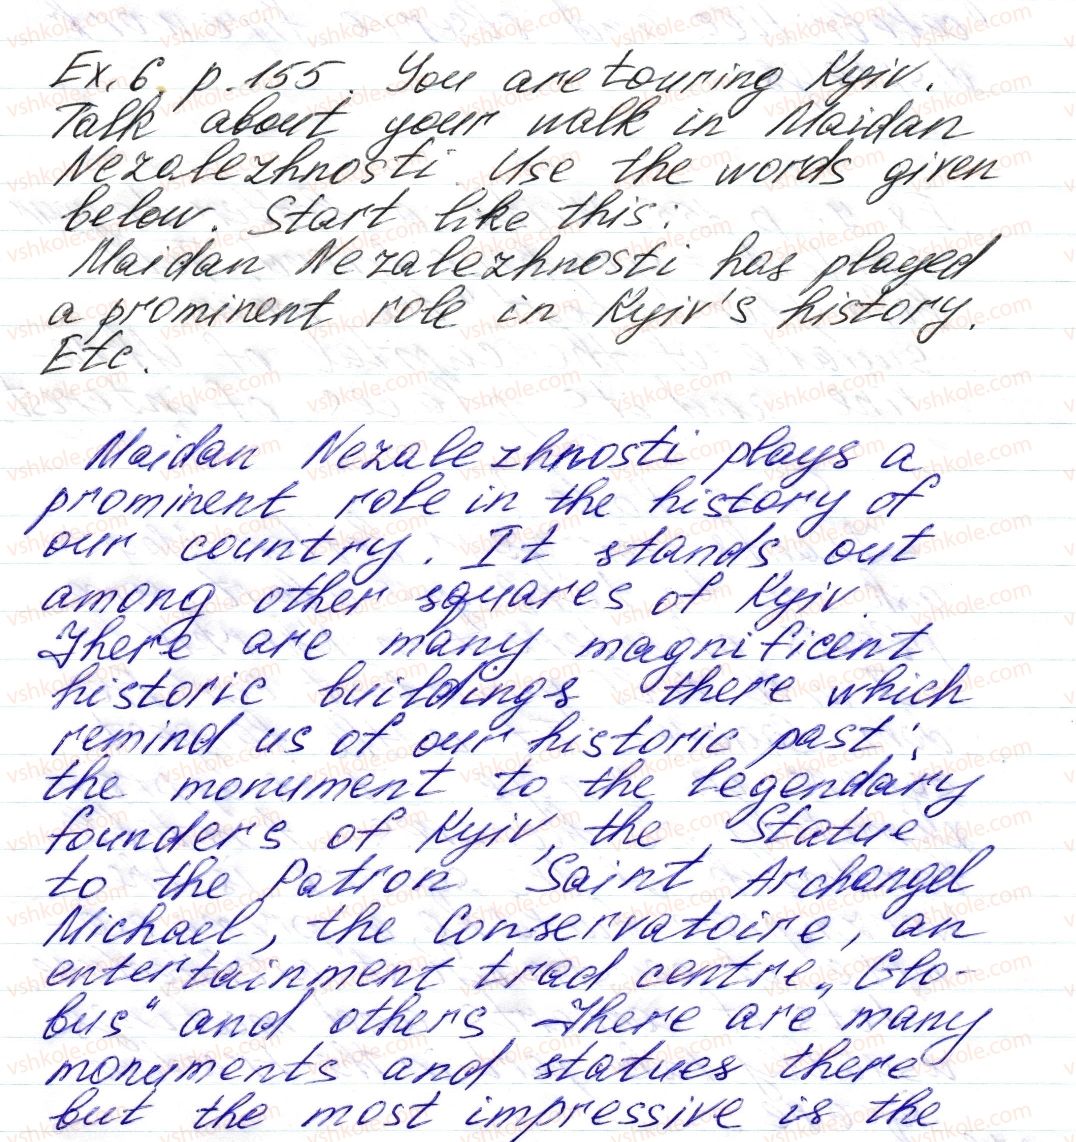 Ex. 6 p. 155. You are touring Kyiv.
Talk about your walk in Maidan
Nezalezhnosti. Use the words given
below. Start like this:
Maidan Nezalezhnosti has played
a prominent role in Kyiv's history.
Etc.
Maidan Nezalezhnosti plays a
prominent role in the history of
our country. It stands out
among other squares of Kyiv.
There are many magnificent
historic buildings there which
remind us of our historic past:
the monument to the legendary
founders of Kyiv, the Statue
to the Patron Saint Archangel
Michael, the Conservatoire, an
entertainment trad centre „Glo-
bus“ and others. There are many
monuments and statues there
but the most impressive is the